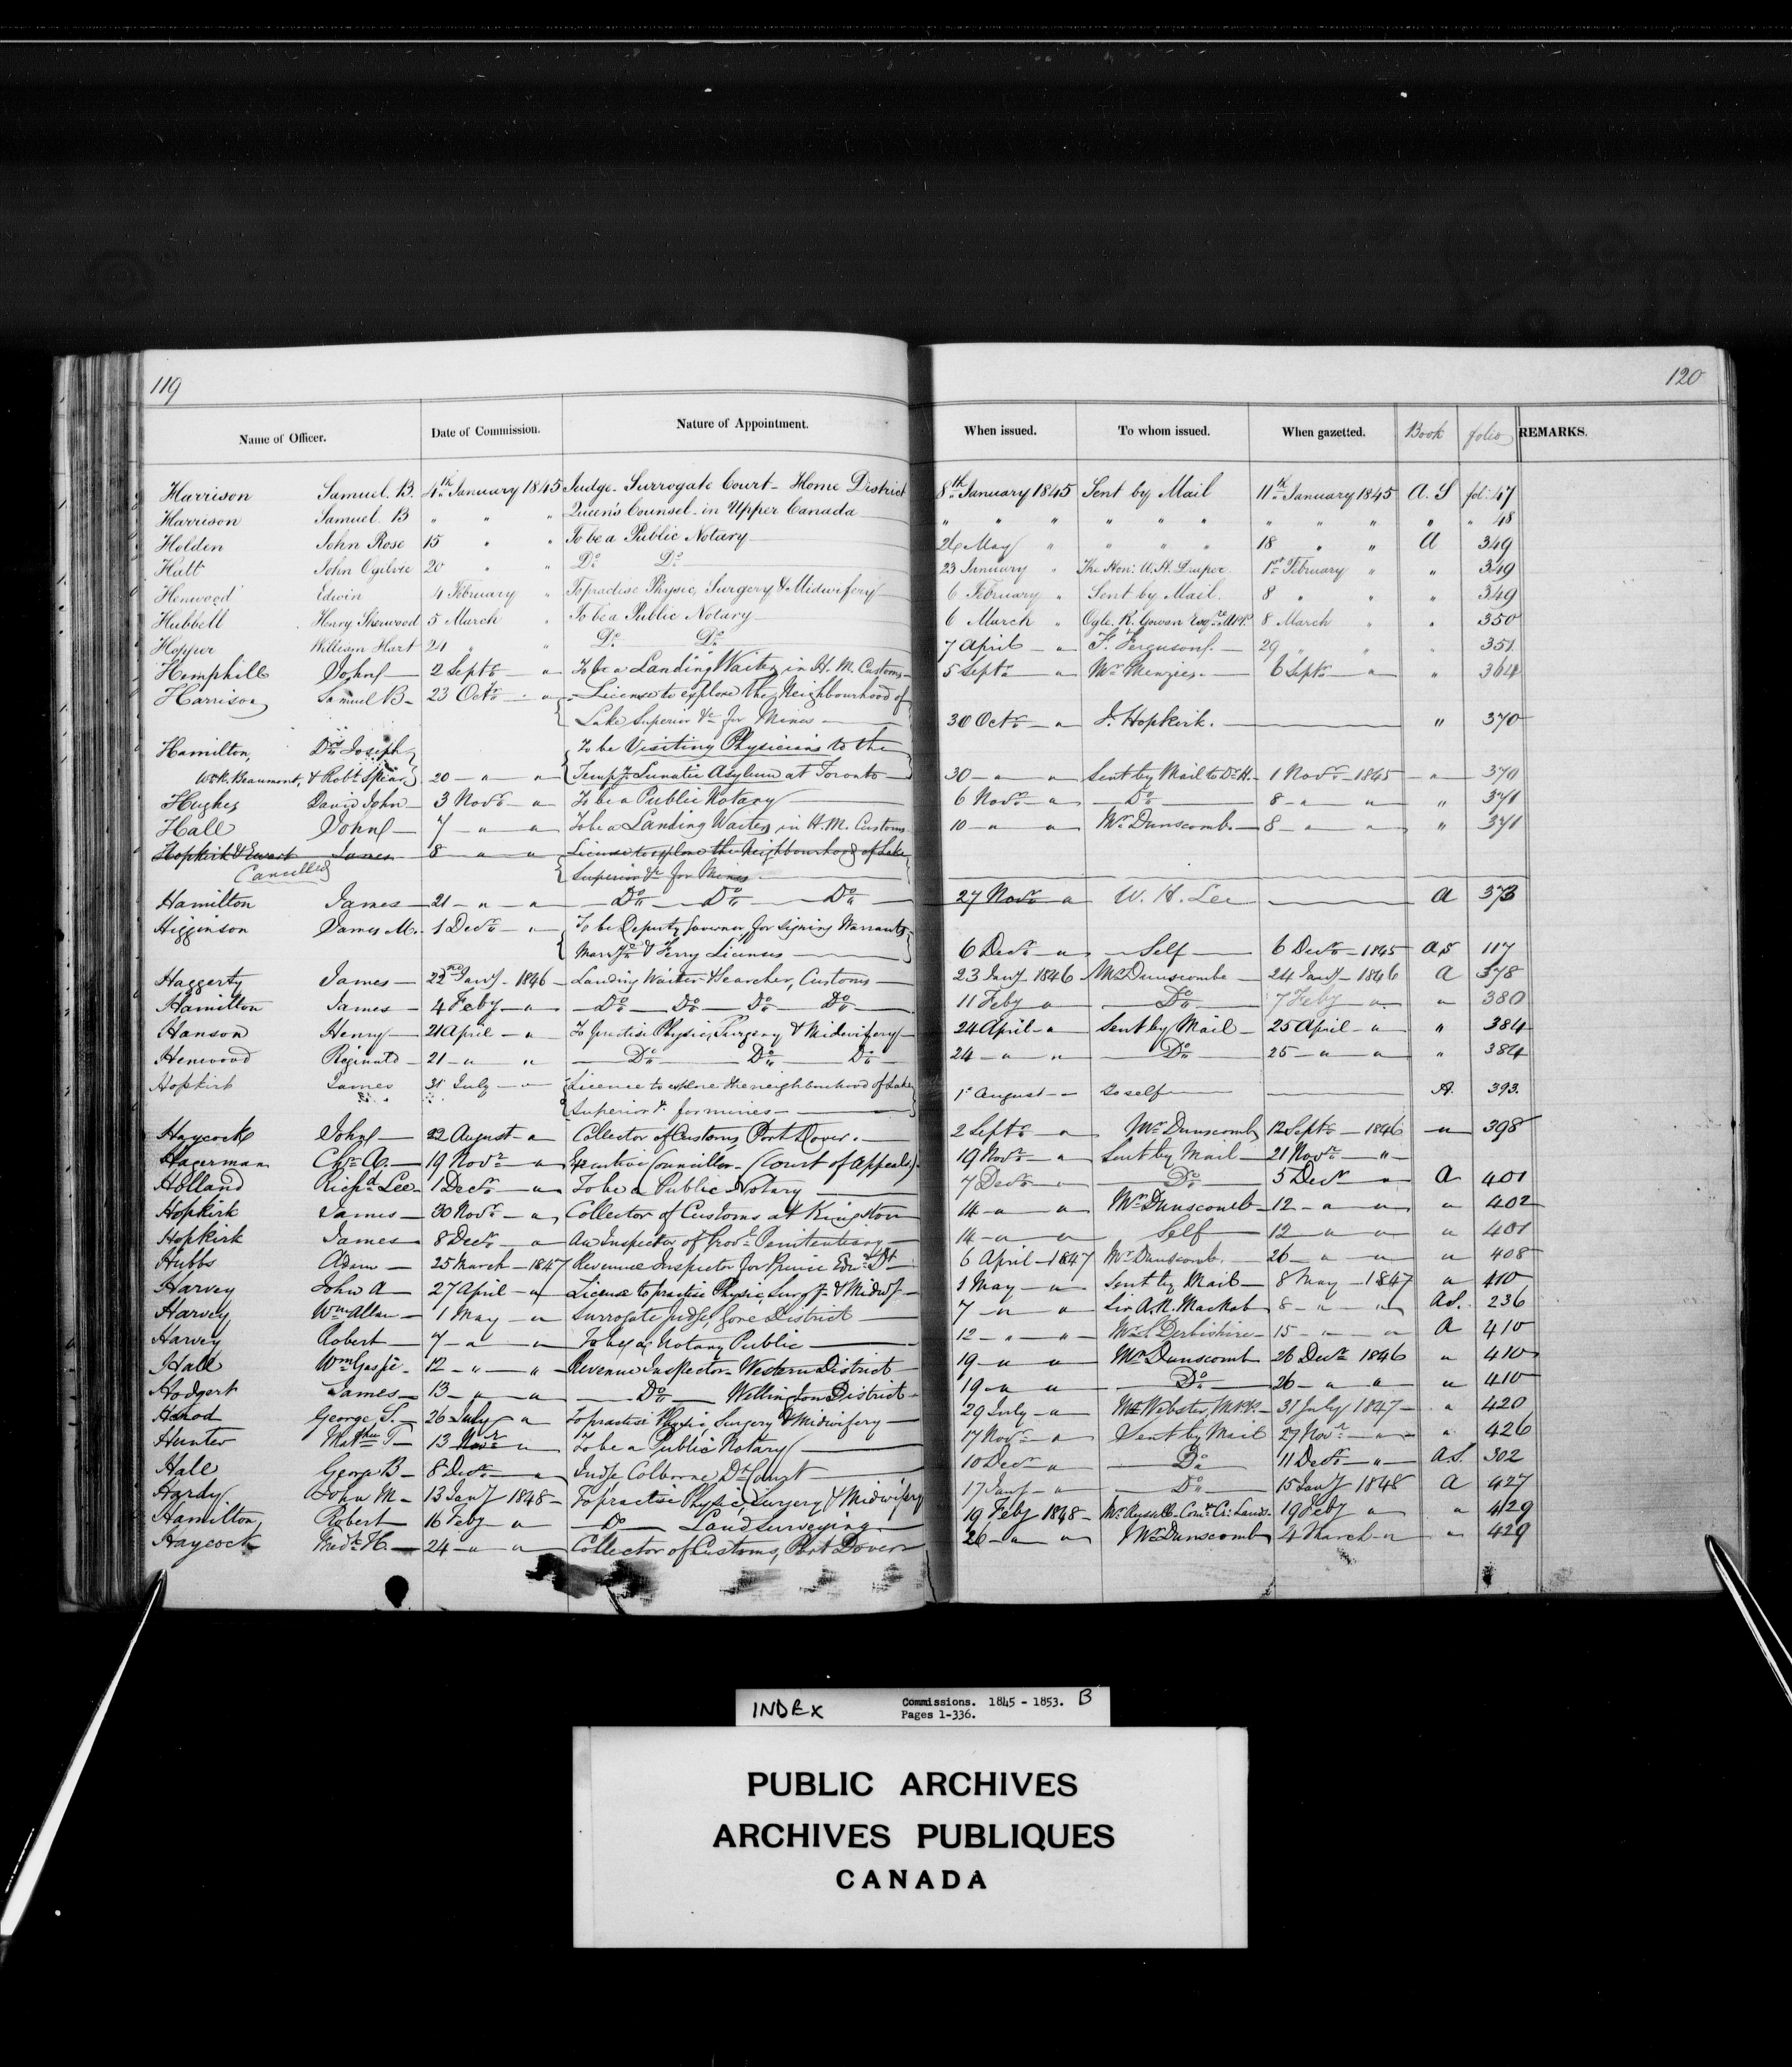 119
120
Name of Officer. Date of Commission. Nature of Appointment. When issued. To whom issued. When gazetted. Book folio REMARKS.
Harrison Samuel. B. 4th January 1845 Judge - Surrogate Court - Home District 8th January 1845 Sent by Mail 11th January 1845 A. S fol: 47
Harrison Samuel. B " " " Queen's Counsel - in Upper Canada " " " " " " " " " " " 48
Holden John Rose 15 " " To be a Public Notary 26 May " " " " 18 " " A 349
Hatt John Ogilvie 20 " " Do Do 23 January " The Hon: W. H. Draper 1st February " " 349
Henwood Edwin 4 February " To practise Physic, Surgery & Midwifery 6 February " Sent by Mail. 8 " " " 349
Hubbell Henry Sherwood 5 March " To be a Public Notary 6 March " Ogle. R. Gowan Esqre M.P.P. 8 March " " 350
Hopper William Hart 24 " " Do Do 7 April - " F. Ferguson. - 29 " " " 351
Hemphill John 2 Septr - " To be a Landing Waiter in H. M. Customs - 5 Septr " Mr Menzies. - 6 Septr - " " 364
Harrison Samuel B - 23 Octr - " - License to explore the Neighbourhood of
Lake Superior &c for Mines 30 Octr - " J. Hopkirk. " 370
Hamilton, Drs Joseph To be Visiting Physicians to the
Wm R. Beaumont, & Robt Spear 20 - " - " Tempy Lunatic Asylum at Toronto 30 - " - " Sent by Mail to Dr H. - 1 Novr - 1845 - " - 370
Hughes David John - 3 Novr - " To be a Public Notary 6 Novr - " Do 8 - " - " " 371
Hall John - 7 - " - " To be a Landing Waiter in H. M. Customs 10 - " - " Mr Dunscomb. - 8 - " - " " 371
Hopkirk & Ewart James 8 " " License to explore the Neighbourhood of Lake
Cancelled Superior &c for Mines
Hamilton James - 21 - " - " Do Do Do 27 Novr " W. H. Lee A 373
Higginson James M. - 1 Decr - " To be Deputy Governor for signing Warrants
Marrge & Ferry Licenses 6 Decr - " Self 6 Decr - 1845 A S 117
Haggerty James - 22nd Jany - 1846 - Landing Waiter & Searcher, Customs 23 Jany - 1846 Mr Dunscombe - 24 Jany - 1846 A 378
Hamilton James - 4 Feby - " Do Do Do Do 11 Feby " Do 7 Feby - " " 380
Hanson Henry - 21 April - " To practise Physic, Surgery & Midwifery 24 April - " Sent by Mail - 25 April - " " 384
Henwood Reginald - 21 - " " Do Do Do 24 - " " Do 25 - " - " " 384
Hopkirk James 31 July - " Licence to explore the neighbourhood of Lake
Superior &c for mines - 1st August - " To self A. 393.
Haycock John - 22 August - " Collector of Customs Port Dover. 2 Septr - " Mr Dunscomb 12 Septr - 1846 " 398
Hagerman Chr A. - 19 Novr - " Executive Councillor - (Court of Appeals) - 19 Novr - " Sent by Mail - 21 Novr - " -
Holland Richd Lee - 1 Decr - " To be a Public Notary 7 Decr - " Do 5 Decr " A 401
Hopkirk James - 30 Novr - " Collector of Customs at Kingston 14 - " " Mr Dunscomb - 12 - " - " " 402
Hopkirk James - 8 Decr - " An Inspector of Provl Penitentiary - 14 - " " Self 12 " " " 401
Hubbs Adam - 25 March - 1847 Revenue Inspector for Prince Edwd Dt 6 April - 1847 Mr Dunscomb. - 26 - " " " 408
Harvey John A - 27 April - " License to practise Physic, Surgy & Midwf - 1 May - " Sent by Mail - 8 May - 1847 " 410
Harvey Wm Allan - 1 May - " Surrogate Judge, Gore District 7 - " " Sir A. N. MacNab 8 - " " A S. 236
Harvey Robert - 7 - " - " To be a Notary Public 12 - " - " Mr S. Derbishire - 15 - " " A 410
Hall Wm Gaspé - 12 - " " - Revenue Inspector - Western District 19 - " " Mr Dunscomb 26 Decr 1846 " 410
Hodgert James - 13 - " - " Do Wellington District - 19 - " " Do 26 - " " " 410
Harod George S. - 26 July - " To practise Physic, Surgery & Midwifery - 29 July - " Mr Webster, M.P.P. - 31 July 1847 - " 420
Hunter Matthew T - 13 Novr - " To be a Public Notary 17 Novr - " Sent by Mail 27 Novr - " - " 426
Hall George B - 8 Decr - " Judge Colborne Dt Court 10 Decr " Do 11 Decr - " - A S. 302
Hardy John M - 13 Jany 1848 - To practise Physic, Surgery & Midwifery 17 Jany - " Do 15 Jany 1848 A 427
Hamilton, Robert 16 Feby - " Do Land surveying 19 Feby 1848 - Comr Cr: Lands - 19 Feby " " 429
Haycock Fredk H. - 24 - " " Collector of Customs, Port Dover 26 - " " Mr Dunscomb 4 March - " " 429
INDEX Commissions. 1845 - 1853. B
Pages 1-336.
PUBLIC ARCHIVES
ARCHIVES PUBLIQUES
CANADA